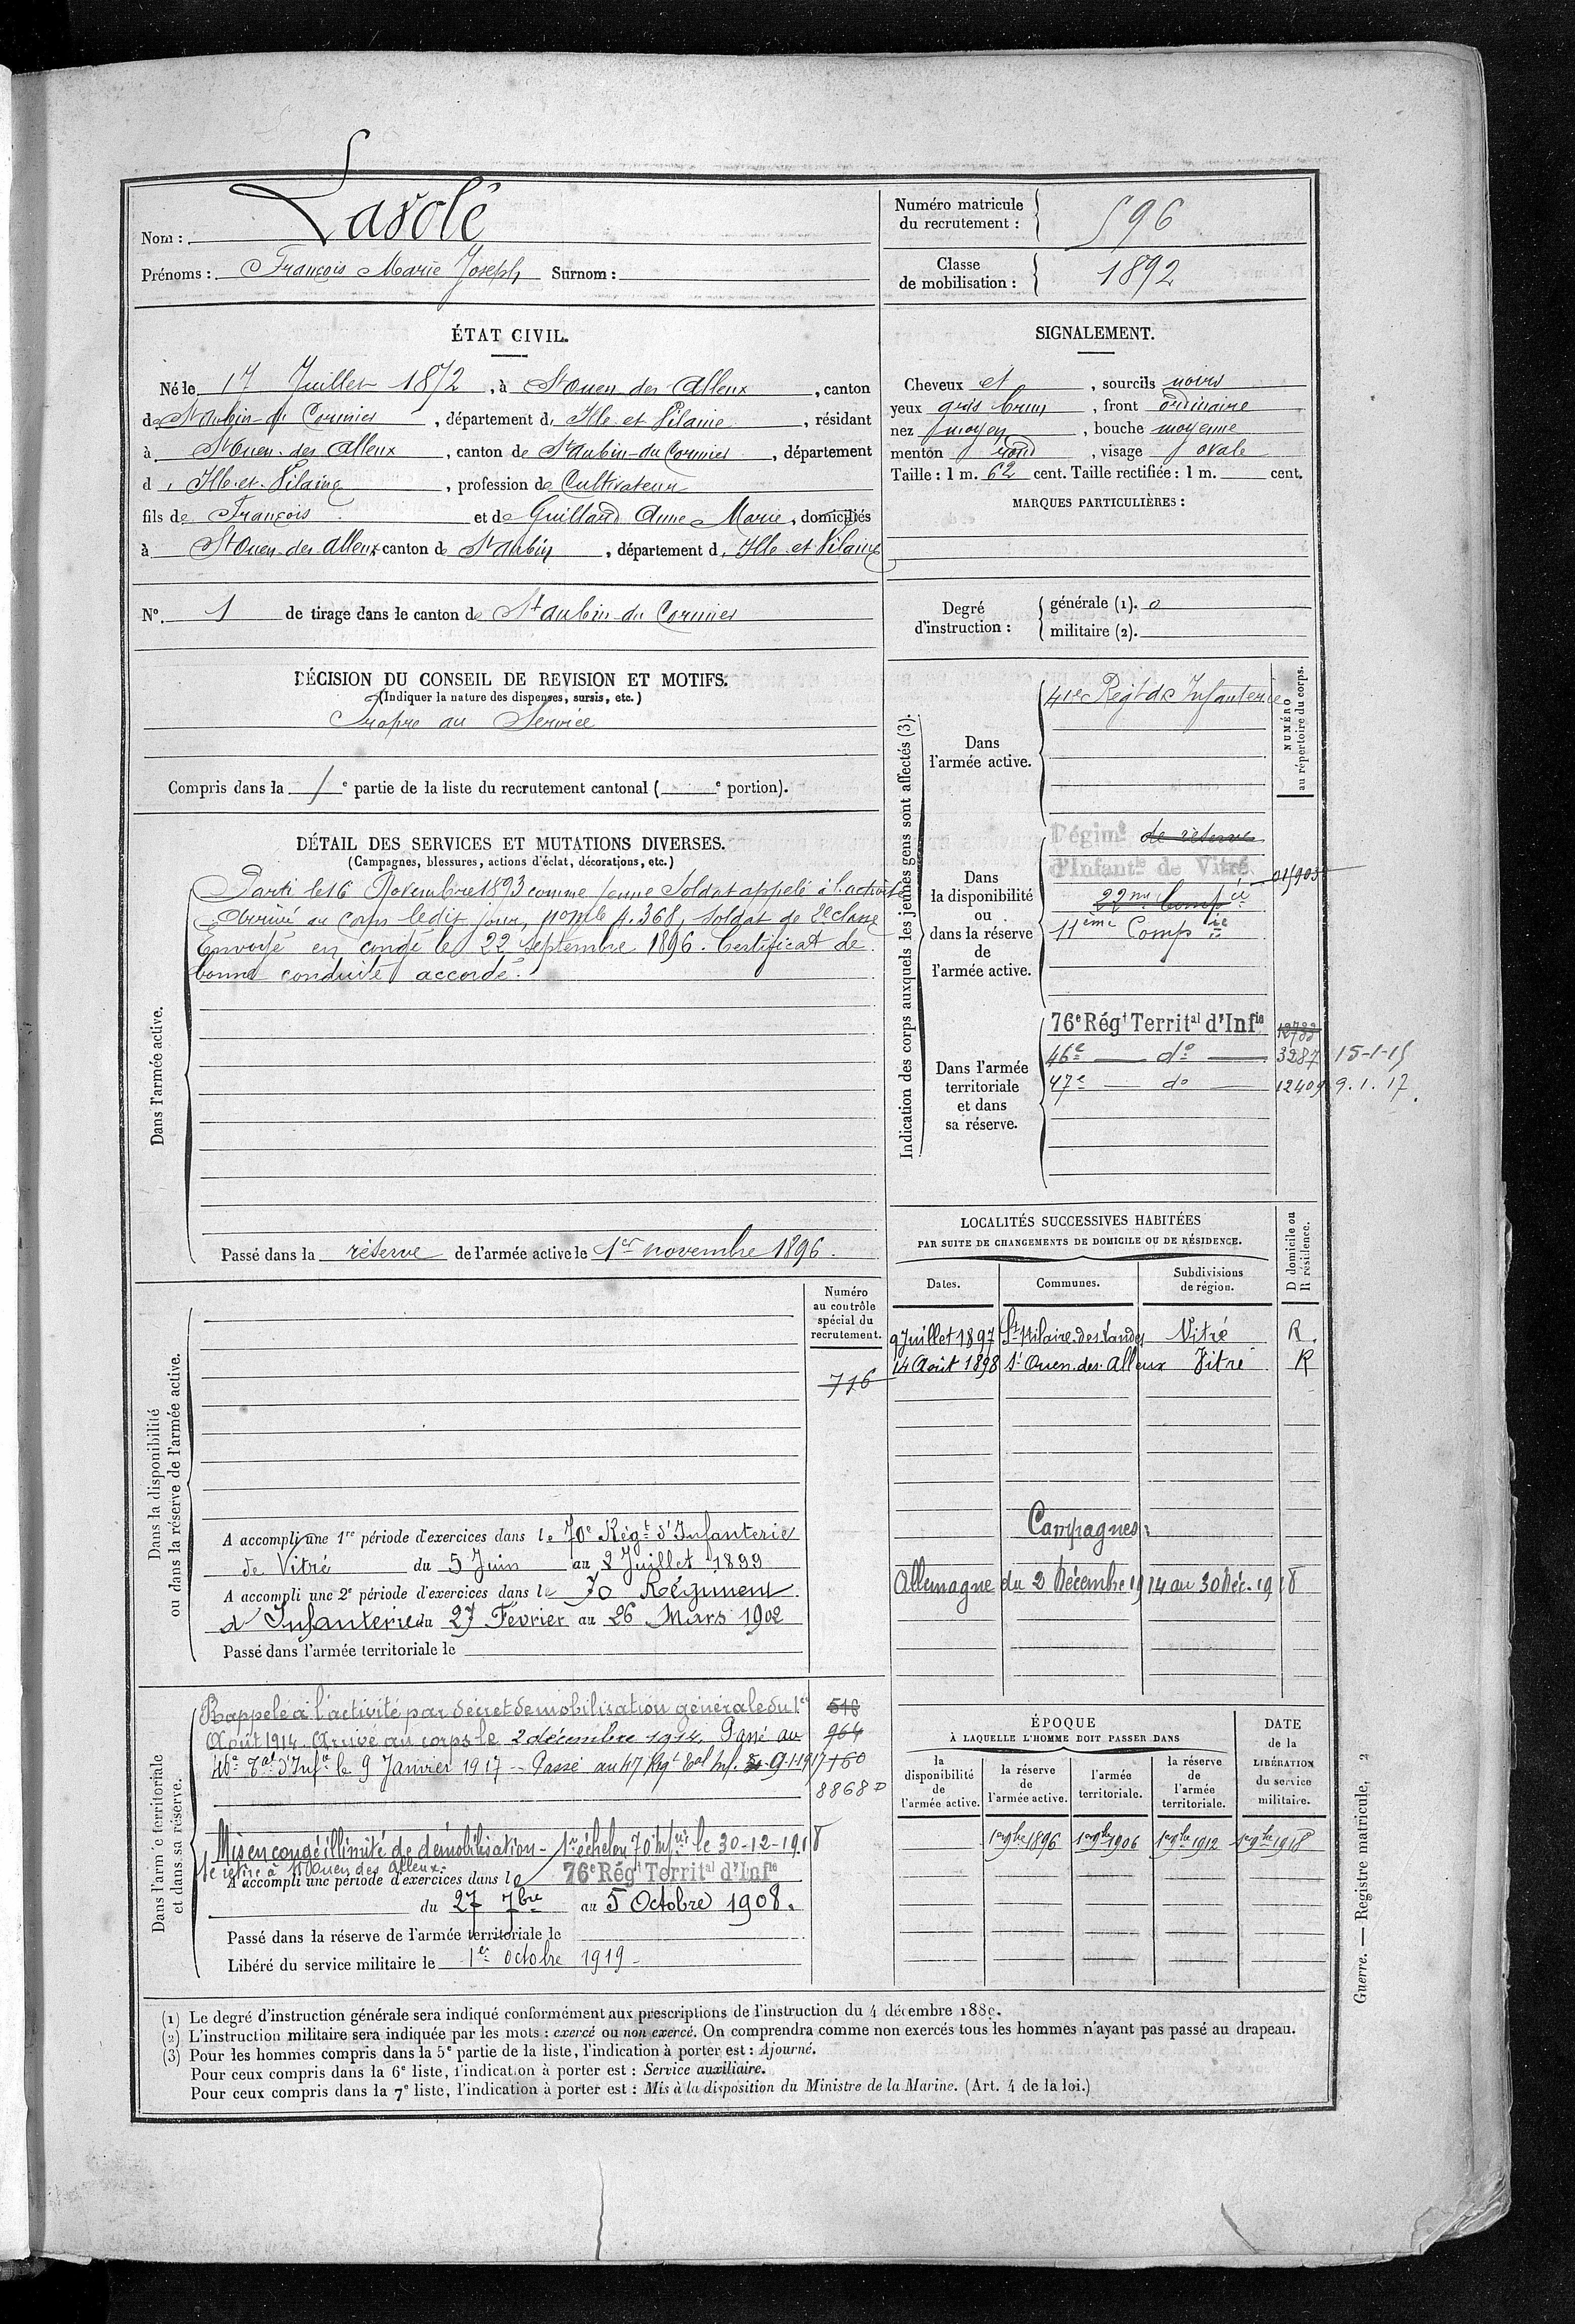 Nom : Lasolé
Prénoms : François Marie Joseph Surnom :
Numéro matricule du recrutement : 596
Classe de mobilisation : 1892
ÉTAT CIVIL.
Né le 17 Juillet 1872, à St Ouen des Alleux, canton
de St Aubin-du Cormier, département d'Ille et Vilaine, résidant
à St Ouen des Alleux, canton de St Aubin-du Cormier, département
d'Ille-et-Vilaine, profession de Cultivateur
fils de François et de Guillard Anne Marie, domiciliés
à St Ouen des Alleux canton de St Aubin, département d'Ille et Vilaine
SIGNALEMENT.
Cheveux et, sourcils noirs
yeux gris brun, front ordinaire
nez moyen, bouche moyenne
menton rond, visage ovale
Taille : 1 m. 62 cent. Taille rectifiée : 1 m. cent.
MARQUES PARTICULIÈRES :
N° 1 de tirage dans le canton de St Aubin-du Cormier
Degré d'instruction :
générale (1). 0
militaire (2).
DÉCISION DU CONSEIL DE REVISION ET MOTIFS.
(Indiquer la nature des dispenses, sursis, etc.)
Propre au Service
Compris dans la 1e partie de la liste du recrutement cantonal ( e portion).
DÉTAIL DES SERVICES ET MUTATIONS DIVERSES.
(Campagnes, blessures, actions d'éclat, décorations, etc.)
Dans l'armée active.
Parti le 16 Novembre 1893 comme jeune Soldat appelé à l'activité
Arrivé au Corps ledit jour, no mle 4.368, soldat de 2e classe
Envoyé en congé le 22 septembre 1896. Certificat de
bonne conduite accordé.
Passé dans la réserve de l'armée active le 1er novembre 1896.
Indication des corps auxquels les jeunes gens sont affectés (3).
NUMÉRO au répertoire du corps.
Dans l'armée active.
41e Régt d'Infanterie
Dans la disponibilité ou dans la réserve de l'armée active.
Régimt de réserve
d'Infantie de Vitré
22me Compie
11ème Compie
Dans l'armée territoriale et dans sa réserve.
76e Régt Territal d'Infie 12783
46e do 3287 15-1-15
47e do 12409 9.1.17.
LOCALITÉS SUCCESSIVES HABITÉES
PAR SUITE DE CHANGEMENTS DE DOMICILE OU DE RÉSIDENCE.
Dates. Communes. Subdivisions de région. D domicile ou R résidence.
9 Juillet 1897 St Hilaire-des-Landes Vitré R.
14 Août 1898 St Ouen-des-Alleux Vitré R
Campagnes :
Allemagne du 2 Décembre 1914 au 30 Déc. 1918
Dans la disponibilité ou dans la réserve de l'armée active.
Numéro au contrôle spécial du recrutement.
716
A accompli une 1re période d'exercices dans le 70e Régt d'Infanterie
de Vitré du 5 Juin au 2 Juillet 1899
A accompli une 2e période d'exercices dans le 70 Régiment
d'Infanterie du 27 Février au 26 Mars 1902
Passé dans l'armée territoriale le
Dans l'armée territoriale et dans sa réserve.
Rappelé à l'activité par décret de mobilisation générale du 1er 518
Août 1914. Arrivé au corps le 2 décembre 1914. Passé au 964
46e Tal d'Infie le 9 Janvier 1917 - Passé au 47 Régt Tal Inf. 9-1-1917 160
8868 D
Mis en congé illimité de démobilisation - 1er échelon 70e Infie le 30-12-1918
Se retire à St Ouen des Alleux.
A accompli une période d'exercices dans le 76e Régt Territal d'Infie
du 27 7bre au 5 Octobre 1908.
Passé dans la réserve de l'armée territoriale le
Libéré du service militaire le 1er octobre 1919
ÉPOQUE
À LAQUELLE L'HOMME DOIT PASSER DANS
la disponibilité de l'armée active.
la réserve de l'armée active.
l'armée territoriale.
la réserve de l'armée territoriale.
DATE de la LIBÉRATION du service militaire.
1er 9bre 1896 1er 9bre 1906 1er 9bre 1912 1er 9bre 1918
Guerre. — Registre matricule, 2
(1) Le degré d'instruction générale sera indiqué conformément aux prescriptions de l'instruction du 4 décembre 1889.
(2) L'instruction militaire sera indiquée par les mots : exercé ou non exercé. On comprendra comme non exercés tous les hommes n'ayant pas passé au drapeau.
(3) Pour les hommes compris dans la 5e partie de la liste, l'indication à porter est : Ajourné.
Pour ceux compris dans la 6e liste, l'indication à porter est : Service auxiliaire.
Pour ceux compris dans la 7e liste, l'indication à porter est : Mis à la disposition du Ministre de la Marine. (Art. 4 de la loi.)